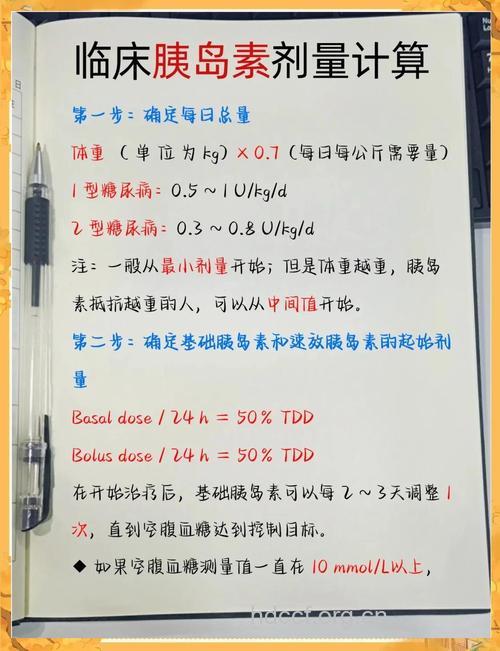 临床胰岛素剂量计算
第一步：确定每日总量
体重（单位为kg）×0.7（每日每公斤需要量）
1型糖尿病：0.5～1U/kg/d
2型糖尿病：0.3～0.8U/kg/d
注：一般从最小剂量开始；但是体重越重，胰岛
素抵抗越重的人，可以从中间值开始。
第二步：确定基础胰岛素和速放胰岛素的起始剂
量
Basal dose / 24 h = 50% TDD
Bolus dose / 24 h = 50% TDD
在开始治疗后，基础胰岛素可以每2～3天调整1
次，直到空腹血糖达到控制目标。
◆ 如果空腹血糖测量值一直在10 mmol/L以上，